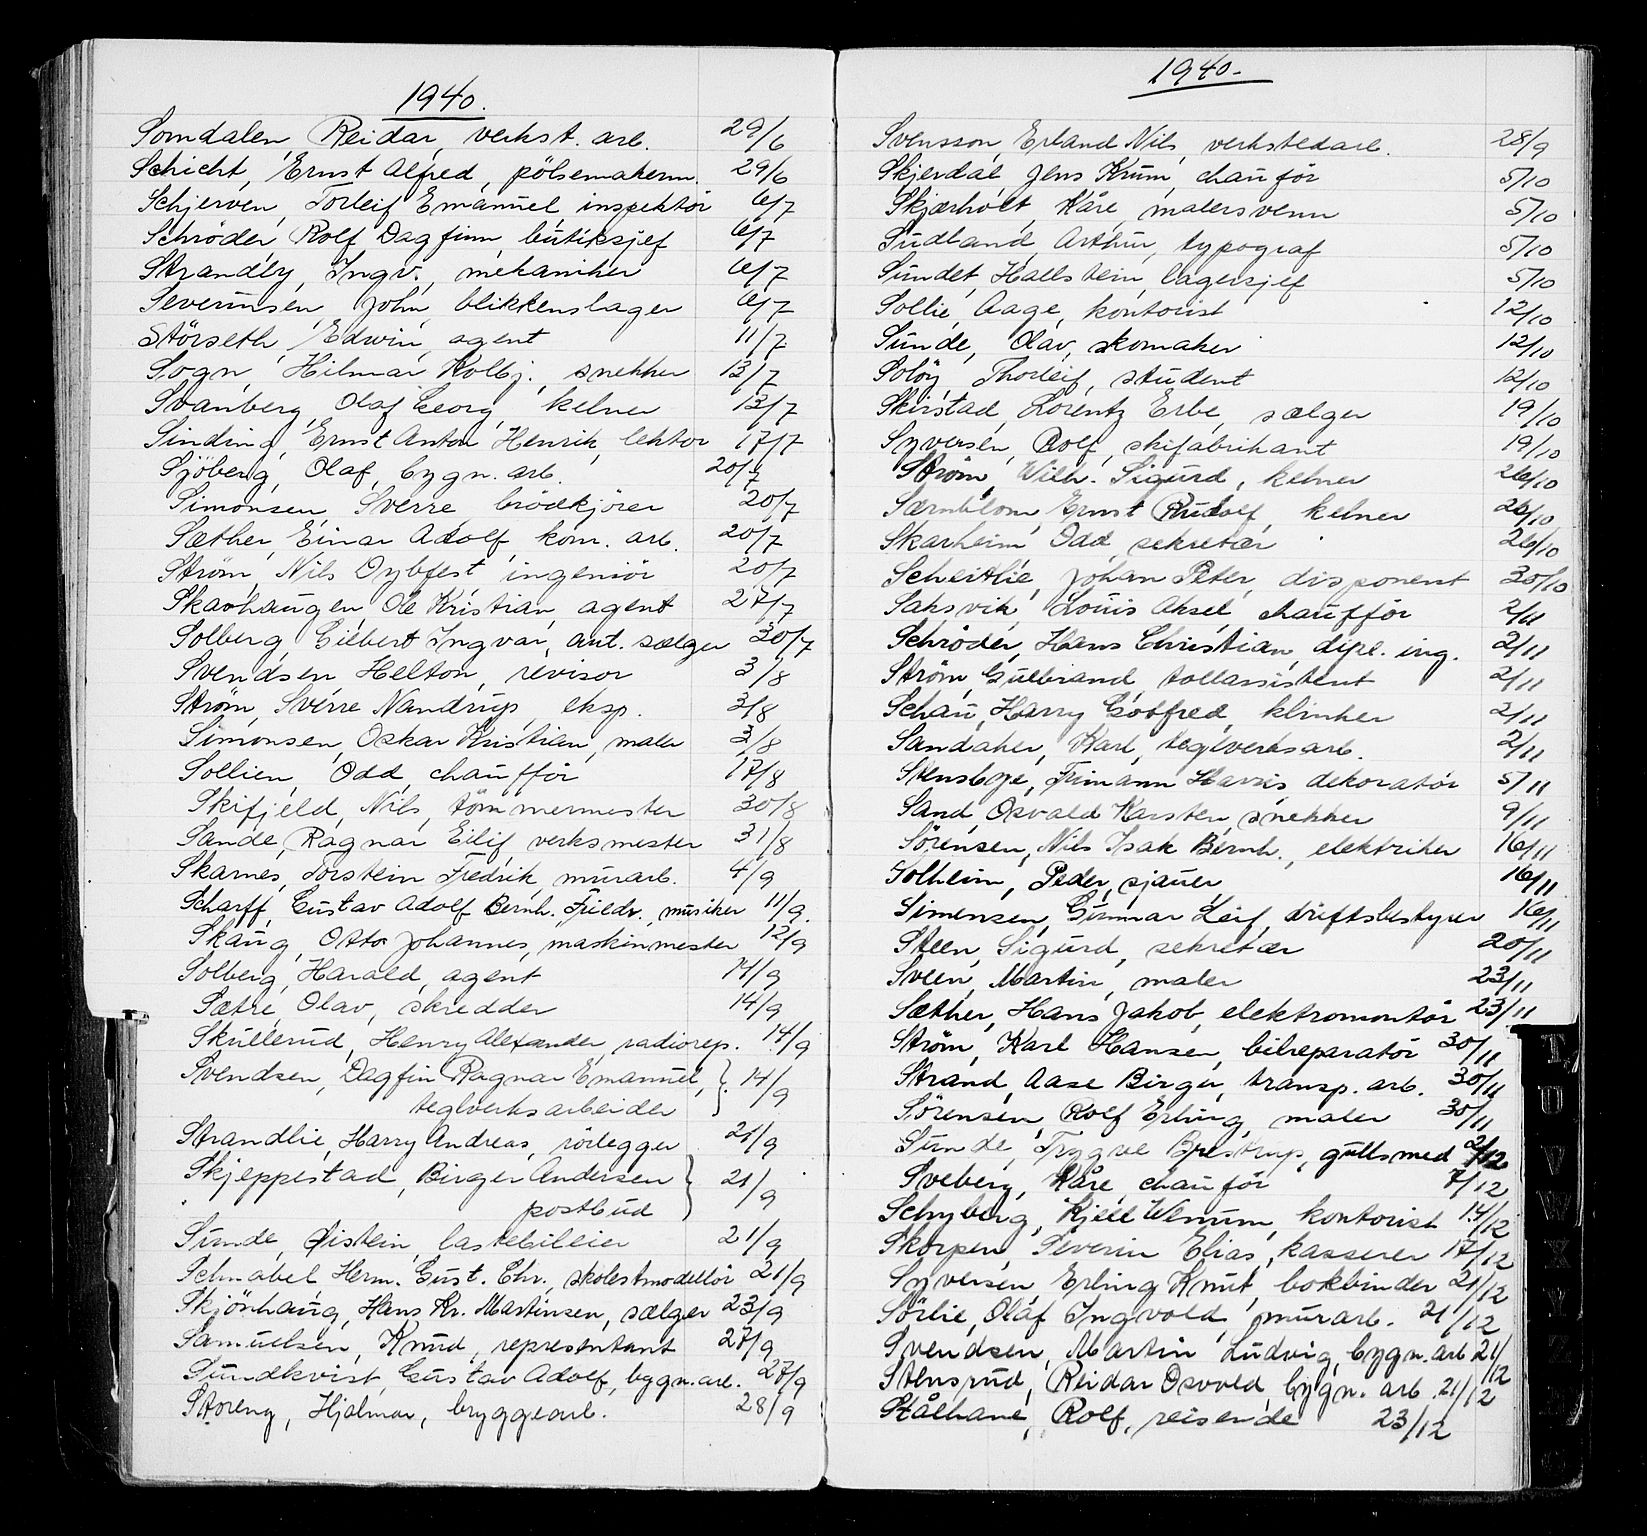 1940.
Somdalen, Reidar, verkst. arb. 29/6
Schicht, Ernst Alfred, pölsemakerm. 29/6
Schjerven, Torleif Emanuel inspektör 6/7
Schröder Rolf Dagfinn, butiksjef 6/7
Strandby, Ingv., mekaniker 6/7
Severinsen, John, blikkenslager 6/7
Störseth, Edwin, agent 11/7
Sogn, Hilmar Kolbj., snekker 13/7
Svanberg, Olaf Georg, kelner 13/7
Sinding, Ernst Anton Henrik, lektor 17/7
Sjöberg, Olaf, bygn. arb. 20/7
Simonsen, Sverre, brödkjörer 20/7
Sæther, Einar Adolf, kom. arb. 20/7
Ström, Nils Oybfest, ingeniör 20/7
Skavhaugen, Ole Kristian, agent 27/7
Solberg, Gilbert Ingvar, aut. sælger 30/7
Svendsen, Helton, revisor 3/8
Ström, Sverre Nandrup, eksp. 3/8
Simonsen, Oskar Kristian, maler 3/8
Sollien, Odd, chaufför 17/8
Skifjeld, Nils, tömmermester 30/8
Sande, Ragnar Eilif verksmester 31/8
Skarnes, Torstein Fredrik, murarb. 4/9
Scharff, Gustav Adolf Bernh. Friedr., musiker 11/9.
Skaug, Otto Johannes, maskinmester 12/9
Solberg, Harald, agent 14/9
Sætre, Olav, skredder 14/9
Skullerud, Henry Alexander, radiorep. 14/9
Svendsen, Dagfin Ragnar Emanuel, 14/9
teglverksarbeider
Strandlie, Harry Andreas, rörlegger 21/9
Skjeppestad, Birger Andersen 21/9
postbud
Sunde, Øistein, lastebileier 21/9
Schnabel Herm. Gust. Chr., skolestmodellör 21/9
Skjönhaug, Hans Kr. Martinsen, sælger 23/9
Samuelsen, Knud, representant 27/9
Sundkvist, Gustav Adolf, bygn. arb. 27/9
Storeng, Hjalmar, bryggearb. 28/9
1940.
Svensson, Erland Nils, verkstedarb. 28/9
Skjerdal Jens Krum, chauför 5/10
Skjærholt, Kåre, malersvenn 5/10
Sudland, Arthur, typograf 5/10
Sundet, Hallstein, lagersjef 5/10
Sollie, Aage, kontorist 12/10
Sunde, Olav, skomaker 12/10
Solöy, Thorleif, student 12/10
Skirstad, Lorentz Erbe, sælger 19/10
Syversen, Rolf, skifabrikant 19/10
Ström, Wilh. Sigurd, kelner 26/10
Särnblom, Ernst Rudolf, kelner 26/10
Skarheim, Odd, sekretær 26/10
Scheitlie, Johan Peter, disponent 30/10
Saksvik, Louis Aksel, chaufför 2/11
Schröder, Hans Christian, dipl. ing. 2/11
Ström, Gulbrand tollassistent 2/11
Schau, Harry Gotfred, klinker 2/11
Sandaker, Karl, teglverksarb. 2/11
Stensbye, Frimann Harris dekoratör 5/11
Sand, Osvald Karsten, snekker 9/11
Sörensen, Nils Isak Bernh., elektriker 16/11
Solheim, Peder, sjauer 16/11
Simensen, Gunnar Leif, driftsbestyrer 16/11
Steen, Sigurd, sekretær 20/11
Sveen, Martin, maler 23/11
Sæther, Hans Jakob, elektromontör 23/11
Ström, Karl Hansen, bilreparatör 30/11
Strand, Aase Birger, transp. arb. 30/11
Sörensen, Rolf Erling, maler 30/11
Sunde, Trygve Brestrup, gullsmed 2/12
Sveberg, Kåre, chauför 7/12
Schyberg, Kjell Wenum, kontorist 14/12
Skorpen, Severin Elias, kasserer 17/12
Syversen, Erling Knut, bokbinder 21/12
Sörlie, Olaf Ingvold, murarb. 21/12
Svendsen, Martin Ludvig, bygn. arb 21/12
Stensrud, Reidar Osvold, bygn. arb. 21/12
Stålhane, Rolf, reisende 23/12
T
U
V
W
X
Y
Z